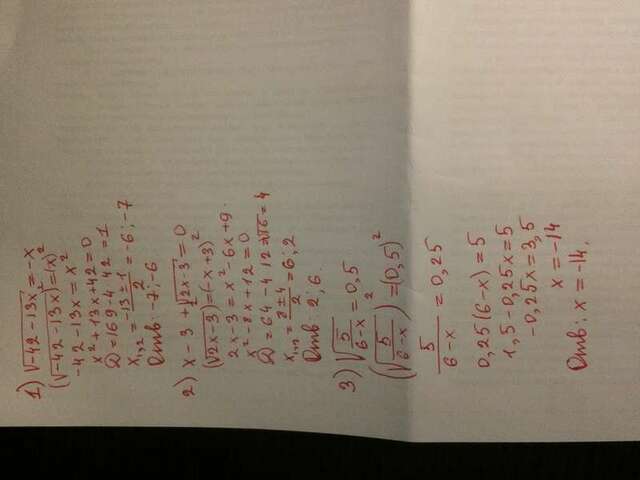 1) √(-42-13x) = -x
(√(-42-13x))² = (x)²
-42-13x = x²
x²+13x+42=0
D=169-4·42=1
x₁,₂ = (-13±1)/2 = -6;-7
Отв: -7;-6
2) x-3+√(2x-3)=0
(√(2x-3))=(-x+3)²
2x-3=x²-6x+9.
x²-8x+12=0
D=64-4·12=√16=4
x₁,₂ = (8±4)/2 = 6;2
Отв: 2;6.
3) √(5/(6-x)) = 0,5
(√(5/(6-x)))² = (0,5)²
5/(6-x) = 0,25
0,25(6-x)=5
1,5-0,25x=5
-0,25x=3,5
x=-14
Отв: x=-14.